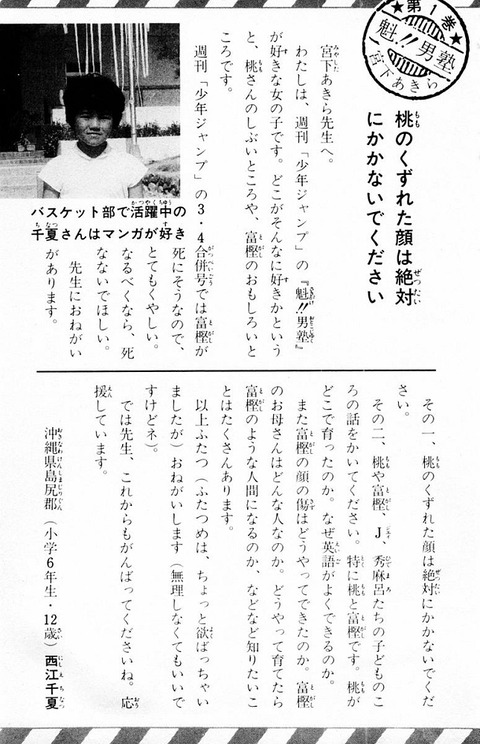 ★第1巻★
魁!!男塾
宮下あきら
桃のくずれた顔は絶対
にかかないでください
宮下あきら先生へ。
わたしは、週刊「少年ジャンプ」の『魁!!男塾』
が好きな女の子です。どこがそんなに好きかという
と、桃さんのしぶいところや、富樫のおもしろいと
ころです。
週刊「少年ジャンプ」の3・4合併号では富樫が
死にそうなので、
とてもくやしい。
なるべくなら、死
なないでほしい。
先生におねがい
があります。
バスケット部で活躍中の
千夏さんはマンガが好き
その一、桃のくずれた顔は絶対にかかないでくだ
さい。
その二、桃や富樫、J、秀麻呂たちの子どものこ
ろの話をかいてください。特に桃と富樫です。桃が
どこで育ったのか。なぜ英語がよくできるのか。
また富樫の顔の傷はどうやってできたのか。富樫
のお母さんはどんな人なのか。どうやって育てたら
富樫のような人間になるのか、などなど知りたいこ
とはたくさんあります。
以上ふたつ（ふたつめは、ちょっと欲ばっちゃい
ましたが）おねがいします（無理しなくてもいいで
すけどネ）。
では先生、これからもがんばってくださいね。応
援しています。
沖縄県島尻郡（小学6年生・12歳）西江千夏